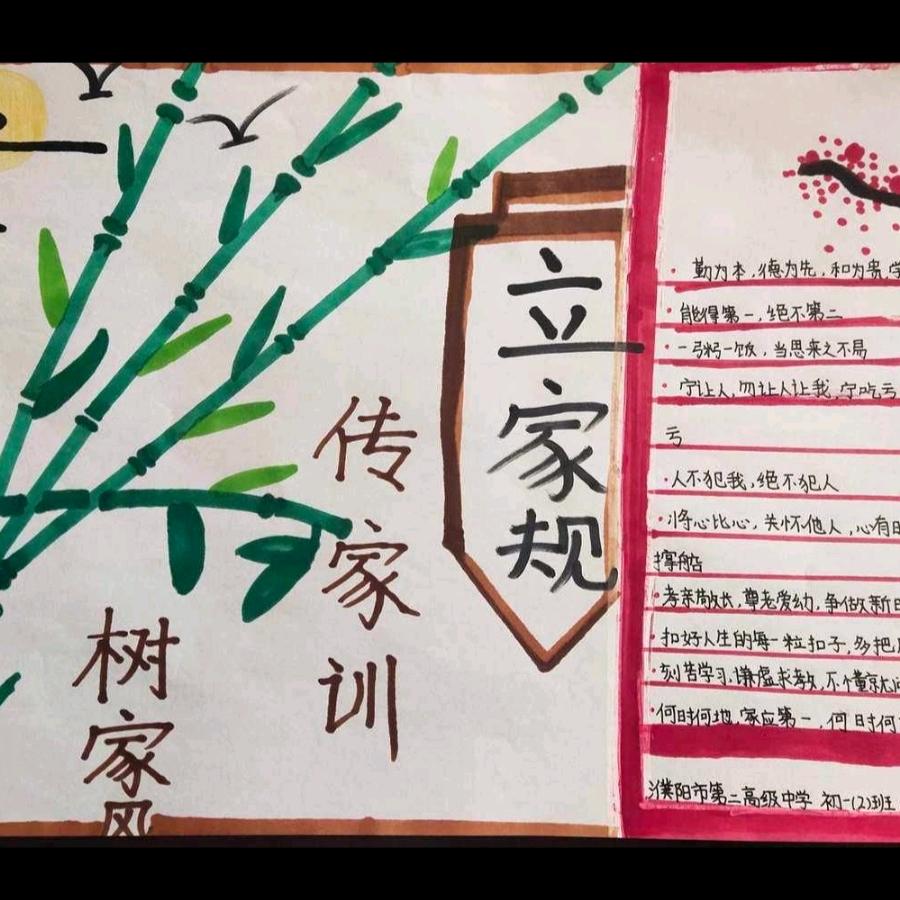 立家规
传家训
树家风
勤为本，德为先，和为贵，学
能得第一，绝不第二
一粥一饭，当思来之不易
宁让人，勿让人让我，宁吃亏
亏
人不犯我，绝不犯人
将心比心，关怀他人，心有
撑船
孝亲敬长，尊老爱幼，争做新
扣好人生的每一粒扣子，多把
刻苦学习，谦虚求教，不懂就问
何时何地，家应第一，何时何
濮阳市第二高级中学 初一(2)班